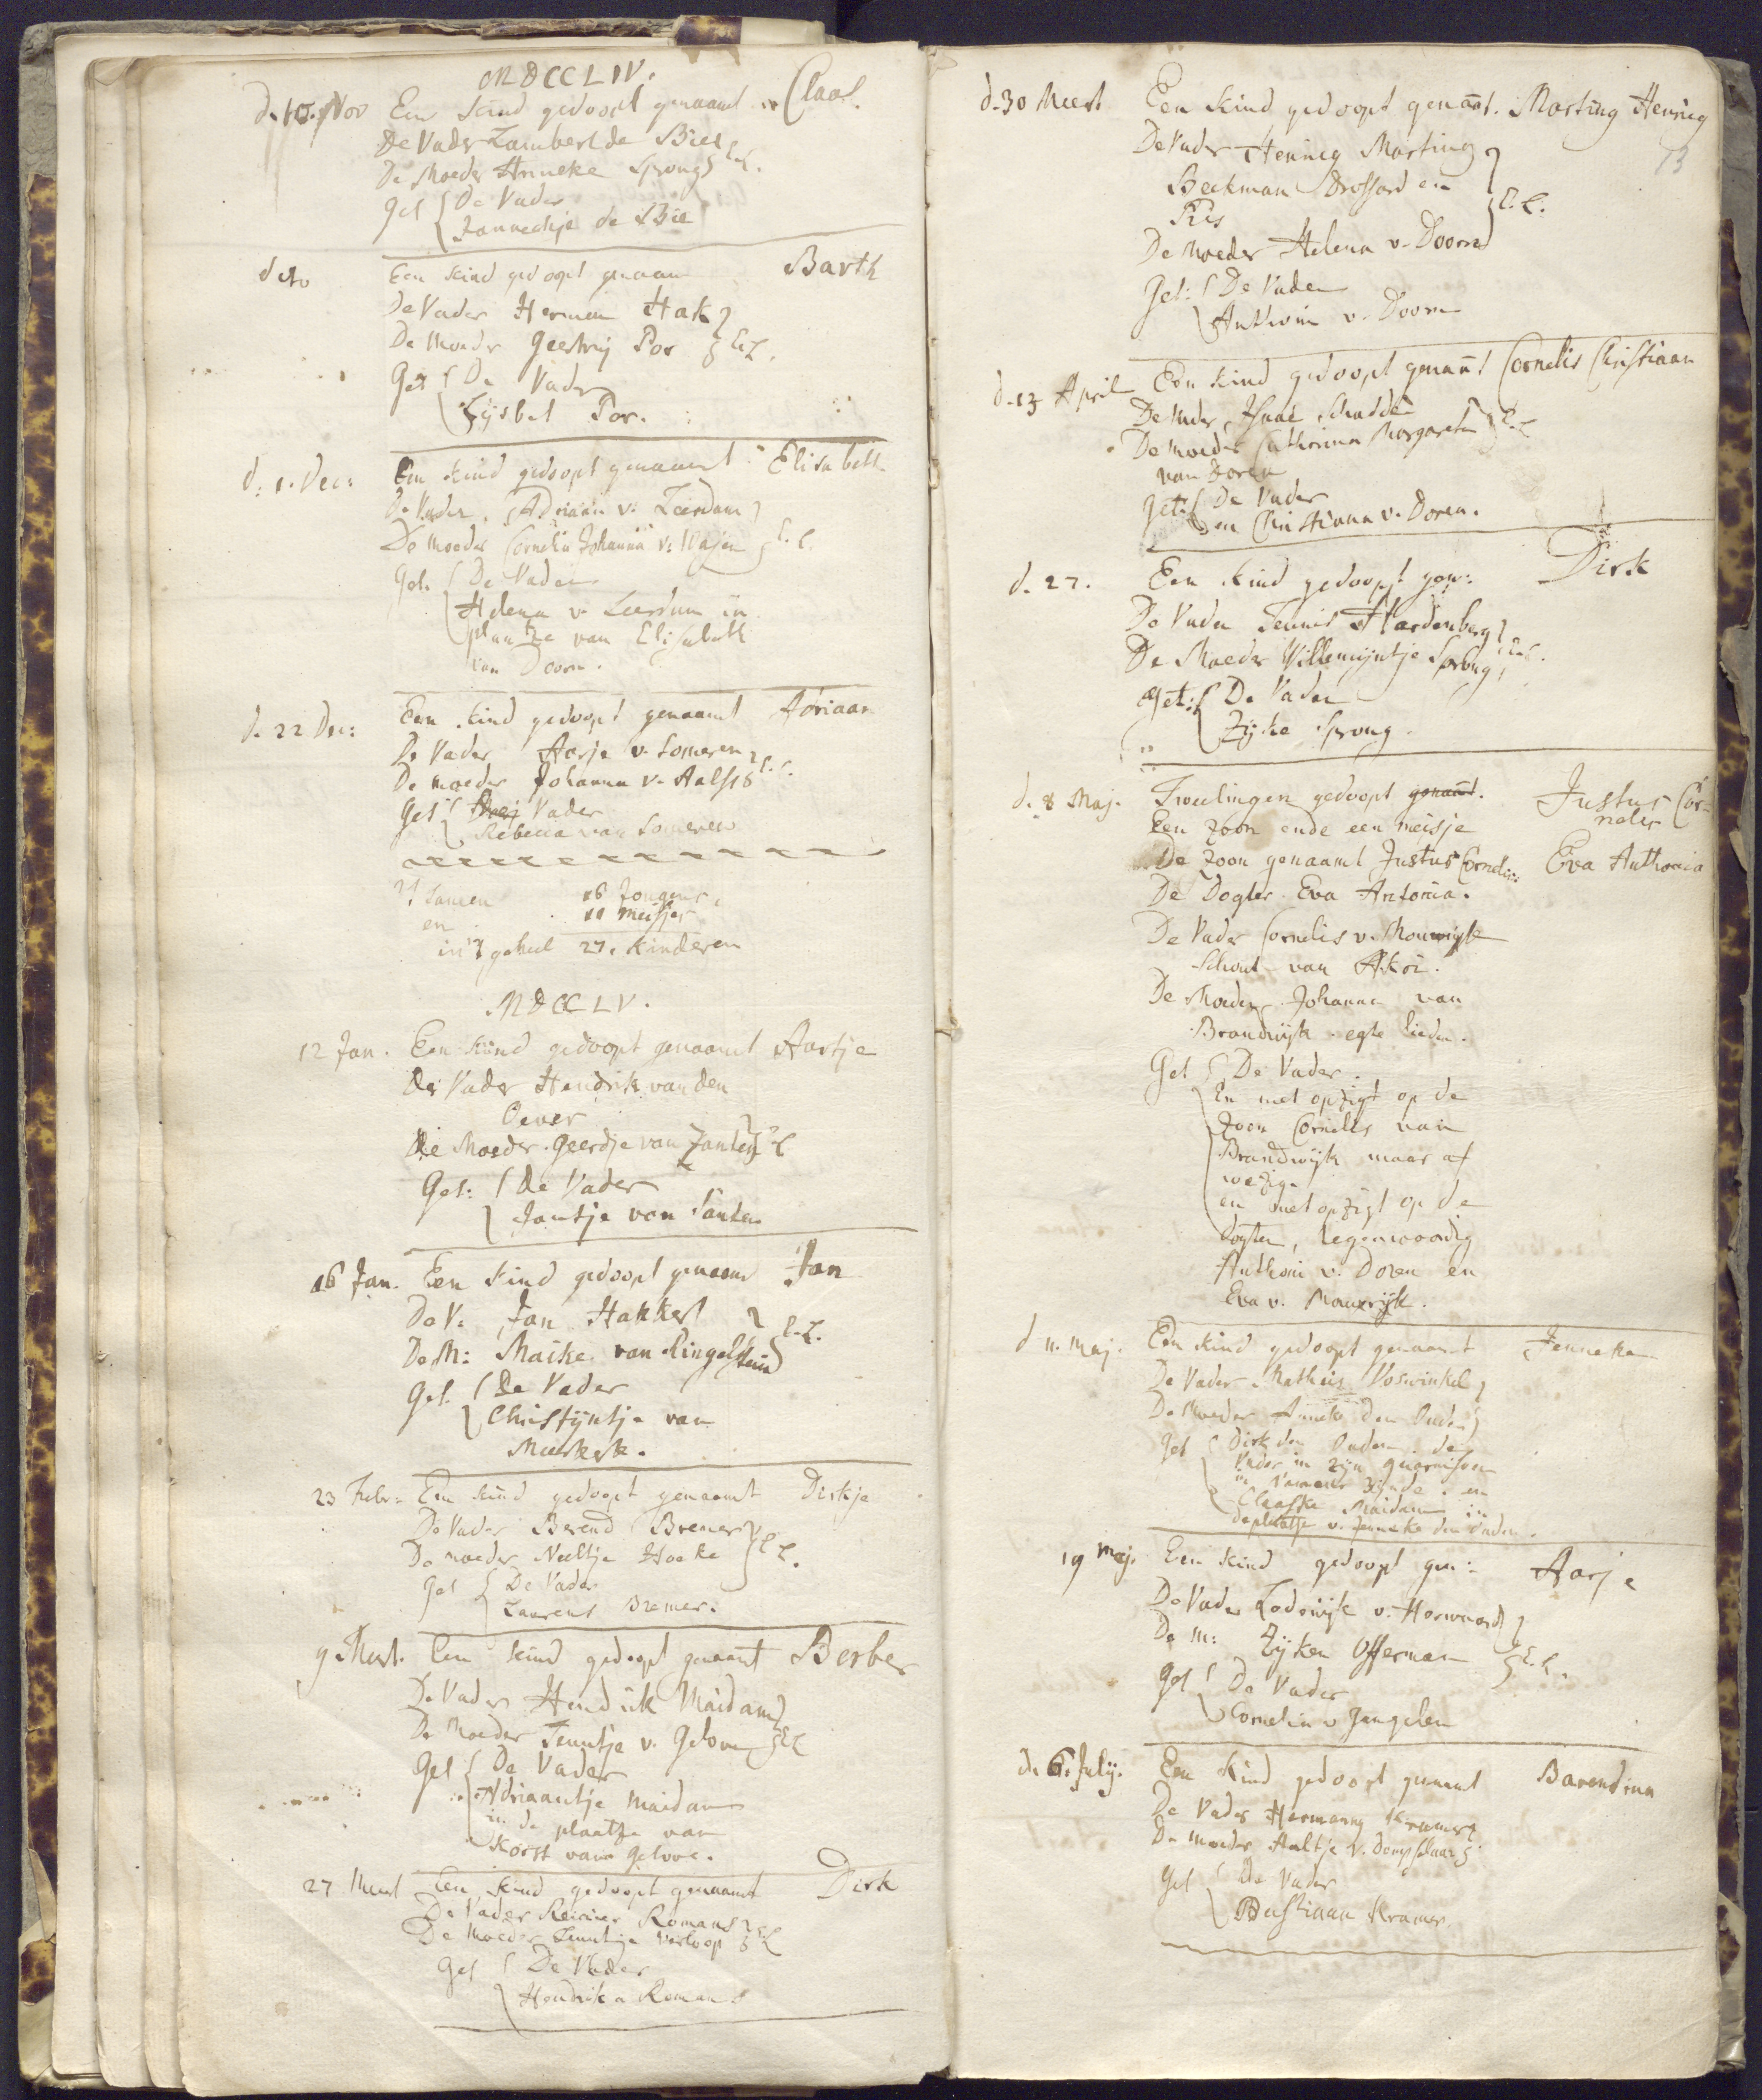 MDCCLIV.
d. 10. Nov Een kind gedoopt genaamt Claas.
De Vader Lambert de Bie
De Moeder Anneke Sprong E.L.
Get De Vader
Jannechje de Bie
d 10 Een kind gedoopt genaam Barth
De Vader Herman Hak
De Moeder Geertruy Por E.L.
Get De Vader
Lijsbet Por.
d: 1. Dec: Een kind gedoopt genaamt Elisabeth
De Vader Adriaan v. Leerdam
De moeder Cornelia Johanna v: E.L.
Get. De Vader
Helena v. Leerdam in
plaatze van Elisabeth
van Doorn.
d. 22 Dec: Een kind gedoopt genaamt Adriaan
De Vader Aarje v. Someren
De moeder Johanna v. Aalst E.L.
Get Vader
Rebecca van Someren
't samen 16 Jongens.
en 11 meisjes
in 't geheel 27. kinderen
MDCCLV.
12 Jan. Een kind gedoopt genaamt Aartje
de Vader Hendrik van den
Oever
De Moeder Geerdje van Zanten E.L
Get: de Vader
Jantje van Santen
16 Jan. Een kind gedoopt genaamt Jan
De V. Jan Hakkert
De M: Maike van Ringelstein E.L.
Get. De Vader
Christijntje van
Meerkerk.
23 Febr: Een kind gedoopt genaamt Dirkje
De Vader Berend Bremer
De moeder Neeltje Hoeke E.L.
Get De Vader
Laurens Bremer.
9 Meert. Een kind gedoopt genaamt Berber
De Vader Hendrik Maidam
De Moeder Teuntje v. Gelove E.L
Get De Vader
Adriaantje Maidam
in de plaatze van
Korst van Gelove.
27 Meert Een kind gedoopt genaamt Dirk
De Vader Reinier Romans
De Moeder Teuntje Verloop E.L
Get De Vader
Hendrik a Romans
d. 30 Meert Een kind gedoopt genaamt. Marting Hennig
13
De Vader Hennig Marting
Beekman Drossard en
E.L.
De Moeder Helena v. Doorn
Get: De Vader
Anthonia v. Doorn
d. 13 April Een kind gedoopt genaamt Cornelis Christiaan
De Vader, Isaac Schadde
De moeder Catharina Margareta E.L
van Doren
Get: De Vader
en Christiana v. Doren.
d. 27. Een kind gedoopt gen: Dirk
De Vader Teunis Hardenberg
De Moeder Willemijntje Sprong E.L.
Get: De Vader
Zijke Sprong.
d. 8 Maj. Tweelingen gedoopt genaamt. Justus Cor-
nelis
Een zoon ende een meisje
De zoon genaamt Justus Cornelis: Eva Anthonia
De Dogter Eva Antonia.
De Vader Cornelis v. Mourigk
Schout van Akoi.
De Moeder Johanna van
Brandwijk egte lieden.
Get De Vader.
En met opzigt op de
Zoon Cornelis van
Brandwijk maar af
wezig.
en met opzigt op de
dogter, tegenwoordig
Anthoni v. Doren en
Eva v. Mourijk.
d 11. Maj. Een kind gedoopt genaamt Jenneke
De Vader Mathijs Voswinkel
De Moeder Anneke den Ouden
Get Dirk den Ouden de
Vader in zijn guarnisoen
in Namen zijnde. en
Claaske Maidam in
de plaatze v. Jenneke den Ouden.
19 Maj. Een kind gedoopt gen: Aarje
De Vader Lodewijk v. Herwaarde
De M: Zijken Offerman E.L.
Get De Vader
Cornelia v Zangelen
d. 6. July. Een kind gedoopt genaamt Barendina
De Vader Hermanus Kramer
De moeder Aaltje v. Dompselaar
Get De Vader
Bastiaan Kramer.